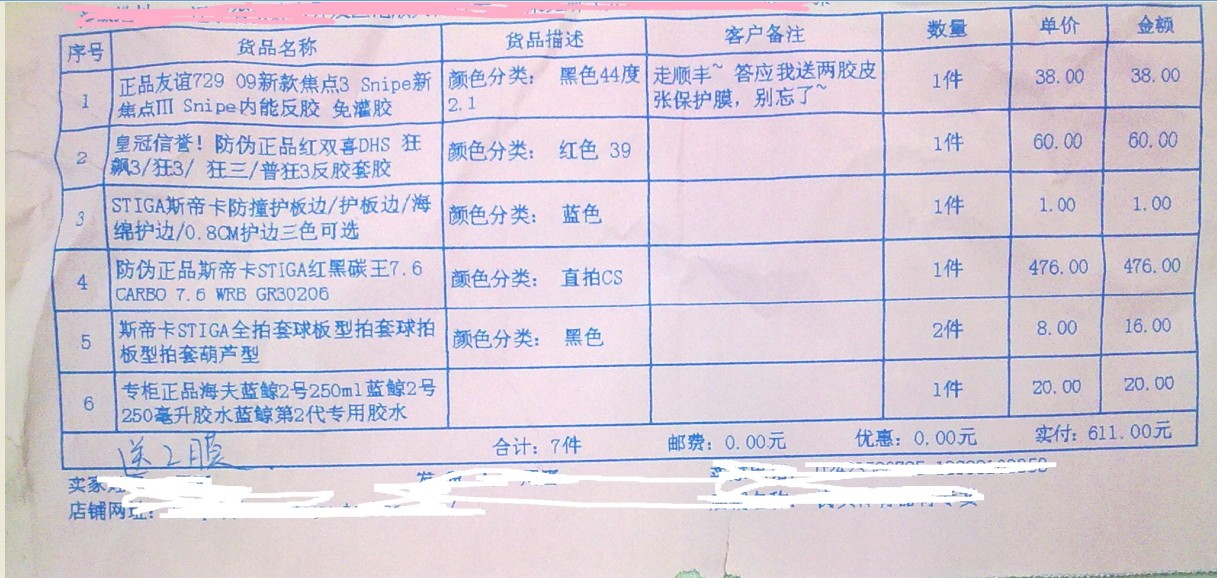 序号 货品名称 货品描述 客户备注 数量 单价 金额
1 正品友谊729 09新款焦点3 Snipe新 颜色分类： 黑色44度 走顺丰~ 答应我送两胶皮 1件 38.00 38.00
焦点III Snipe内能反胶 免灌胶 2.1 张保护膜，别忘了~
2 皇冠信誉！防伪正品红双喜DHS 狂 颜色分类： 红色 39 1件 60.00 60.00
飙3/狂3/ 狂三/普狂3反胶套胶
3 STIGA斯帝卡防撞护板边/护板边/海 颜色分类： 蓝色 1件 1.00 1.00
绵护边/0.8CM护边三色可选
4 防伪正品斯帝卡STIGA红黑碳王7.6 颜色分类： 直拍CS 1件 476.00 476.00
CARBO 7.6 WRB GR30206
5 斯帝卡STIGA全拍套球板型拍套球拍 颜色分类： 黑色 2件 8.00 16.00
板型拍套葫芦型
6 专柜正品海夫蓝鲸2号250ml蓝鲸2号 1件 20.00 20.00
250毫升胶水蓝鲸第2代专用胶水
合计：7件 邮费：0.00元 优惠：0.00元 实付：611.00元
送2膜
买家
店铺网址：